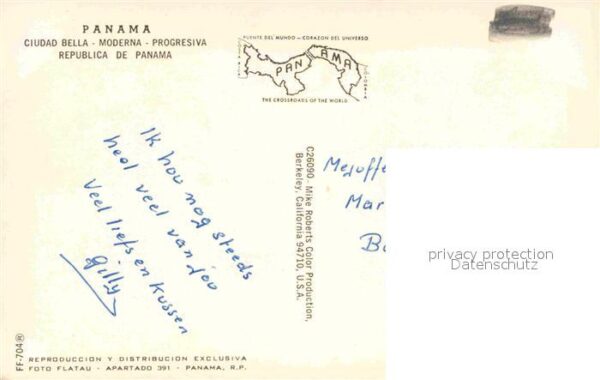 PANAMA
CIUDAD BELLA - MODERNA - PROGRESIVA
REPUBLICA DE PANAMA
PUENTE DEL MUNDO - CORAZON DEL UNIVERSO
PANAMA
COLOMBIA
THE CROSSROADS OF THE WORLD
Ik hou nog steeds
heel veel van jou
Veel liefs en kussen
Gilly
C26090 - Mike Roberts Color Production,
Berkeley, California 94710, U.S.A.
Mejuffe
Mar
privacy protection
Datenschutz
FF-704®
REPRODUCCION Y DISTRIBUCION EXCLUSIVA
FOTO FLATAU - APARTADO 391 - PANAMA, R.P.